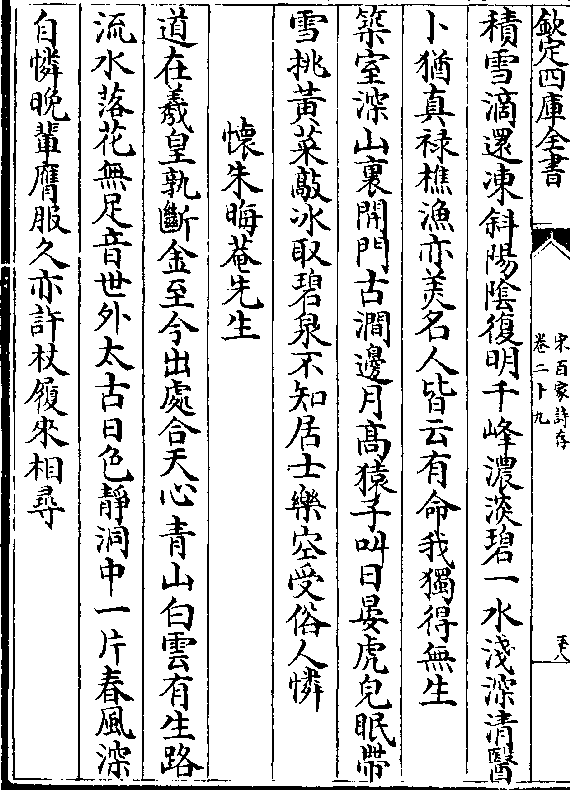 欽定四庫全書
宋百家詩存
卷二十九
積雪滴還凍斜陽陰復明千峰濃淡碧一水淺深清醫
卜猶真禄樵漁亦美名人皆云有命我獨得無生
築室深山裏開門古澗邊月高猿子叫日晏虎兒眠帶
雪挑黃菜敲冰取碧泉不知居士樂空受俗人憐
懷朱晦菴先生
道在羲皇孰斷金至今出處合天心青山白雲有生路
流水落花無足音世外太古日色靜洞中一片春風深
自憐晚輩膺服久亦許杖履來相尋